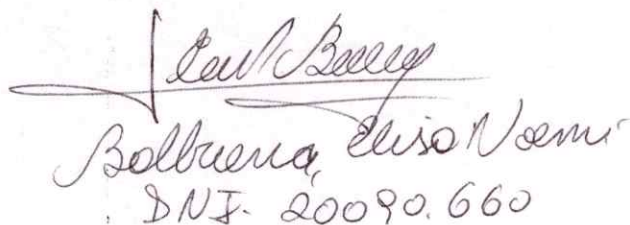 Balbuena, Elisa Noemi
DNI. 20090.660